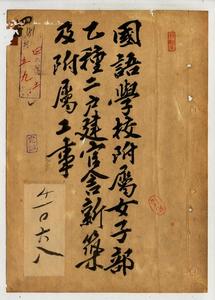 國語學校附屬女子部
乙種二戶建官舍新築
及附屬工事